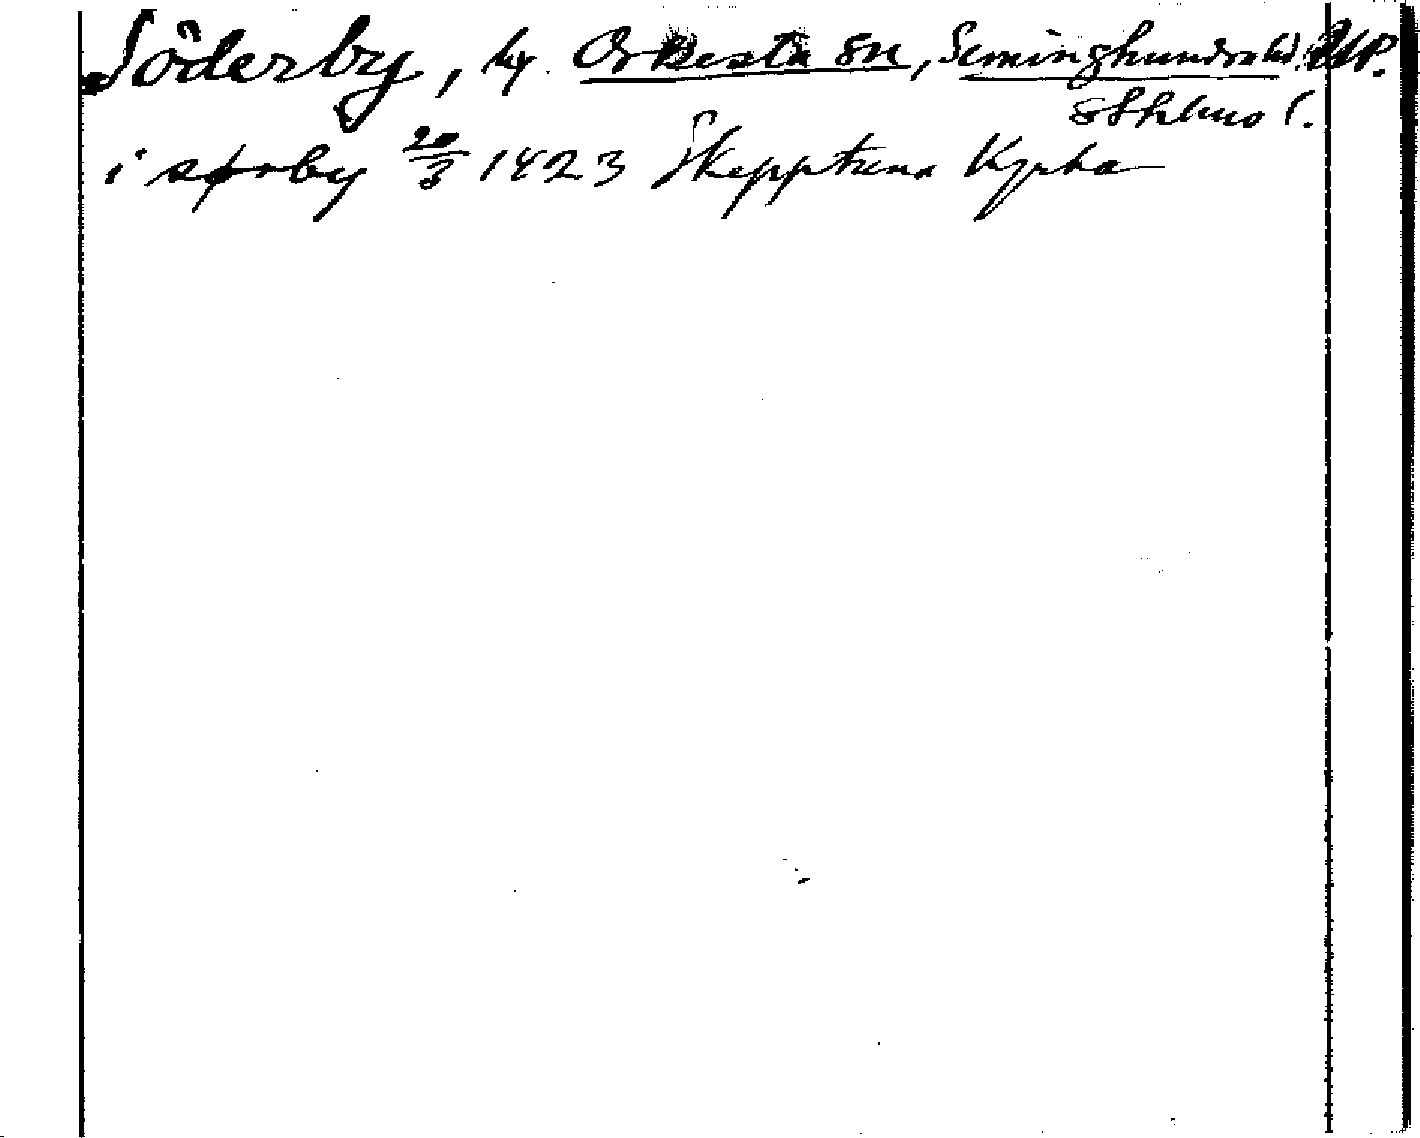 Söderby, by. Orkesta sn, Seminghundra hd. Upl.
Sthlms l.
i søroby 20/3 1423 Skepptuna Kyrka